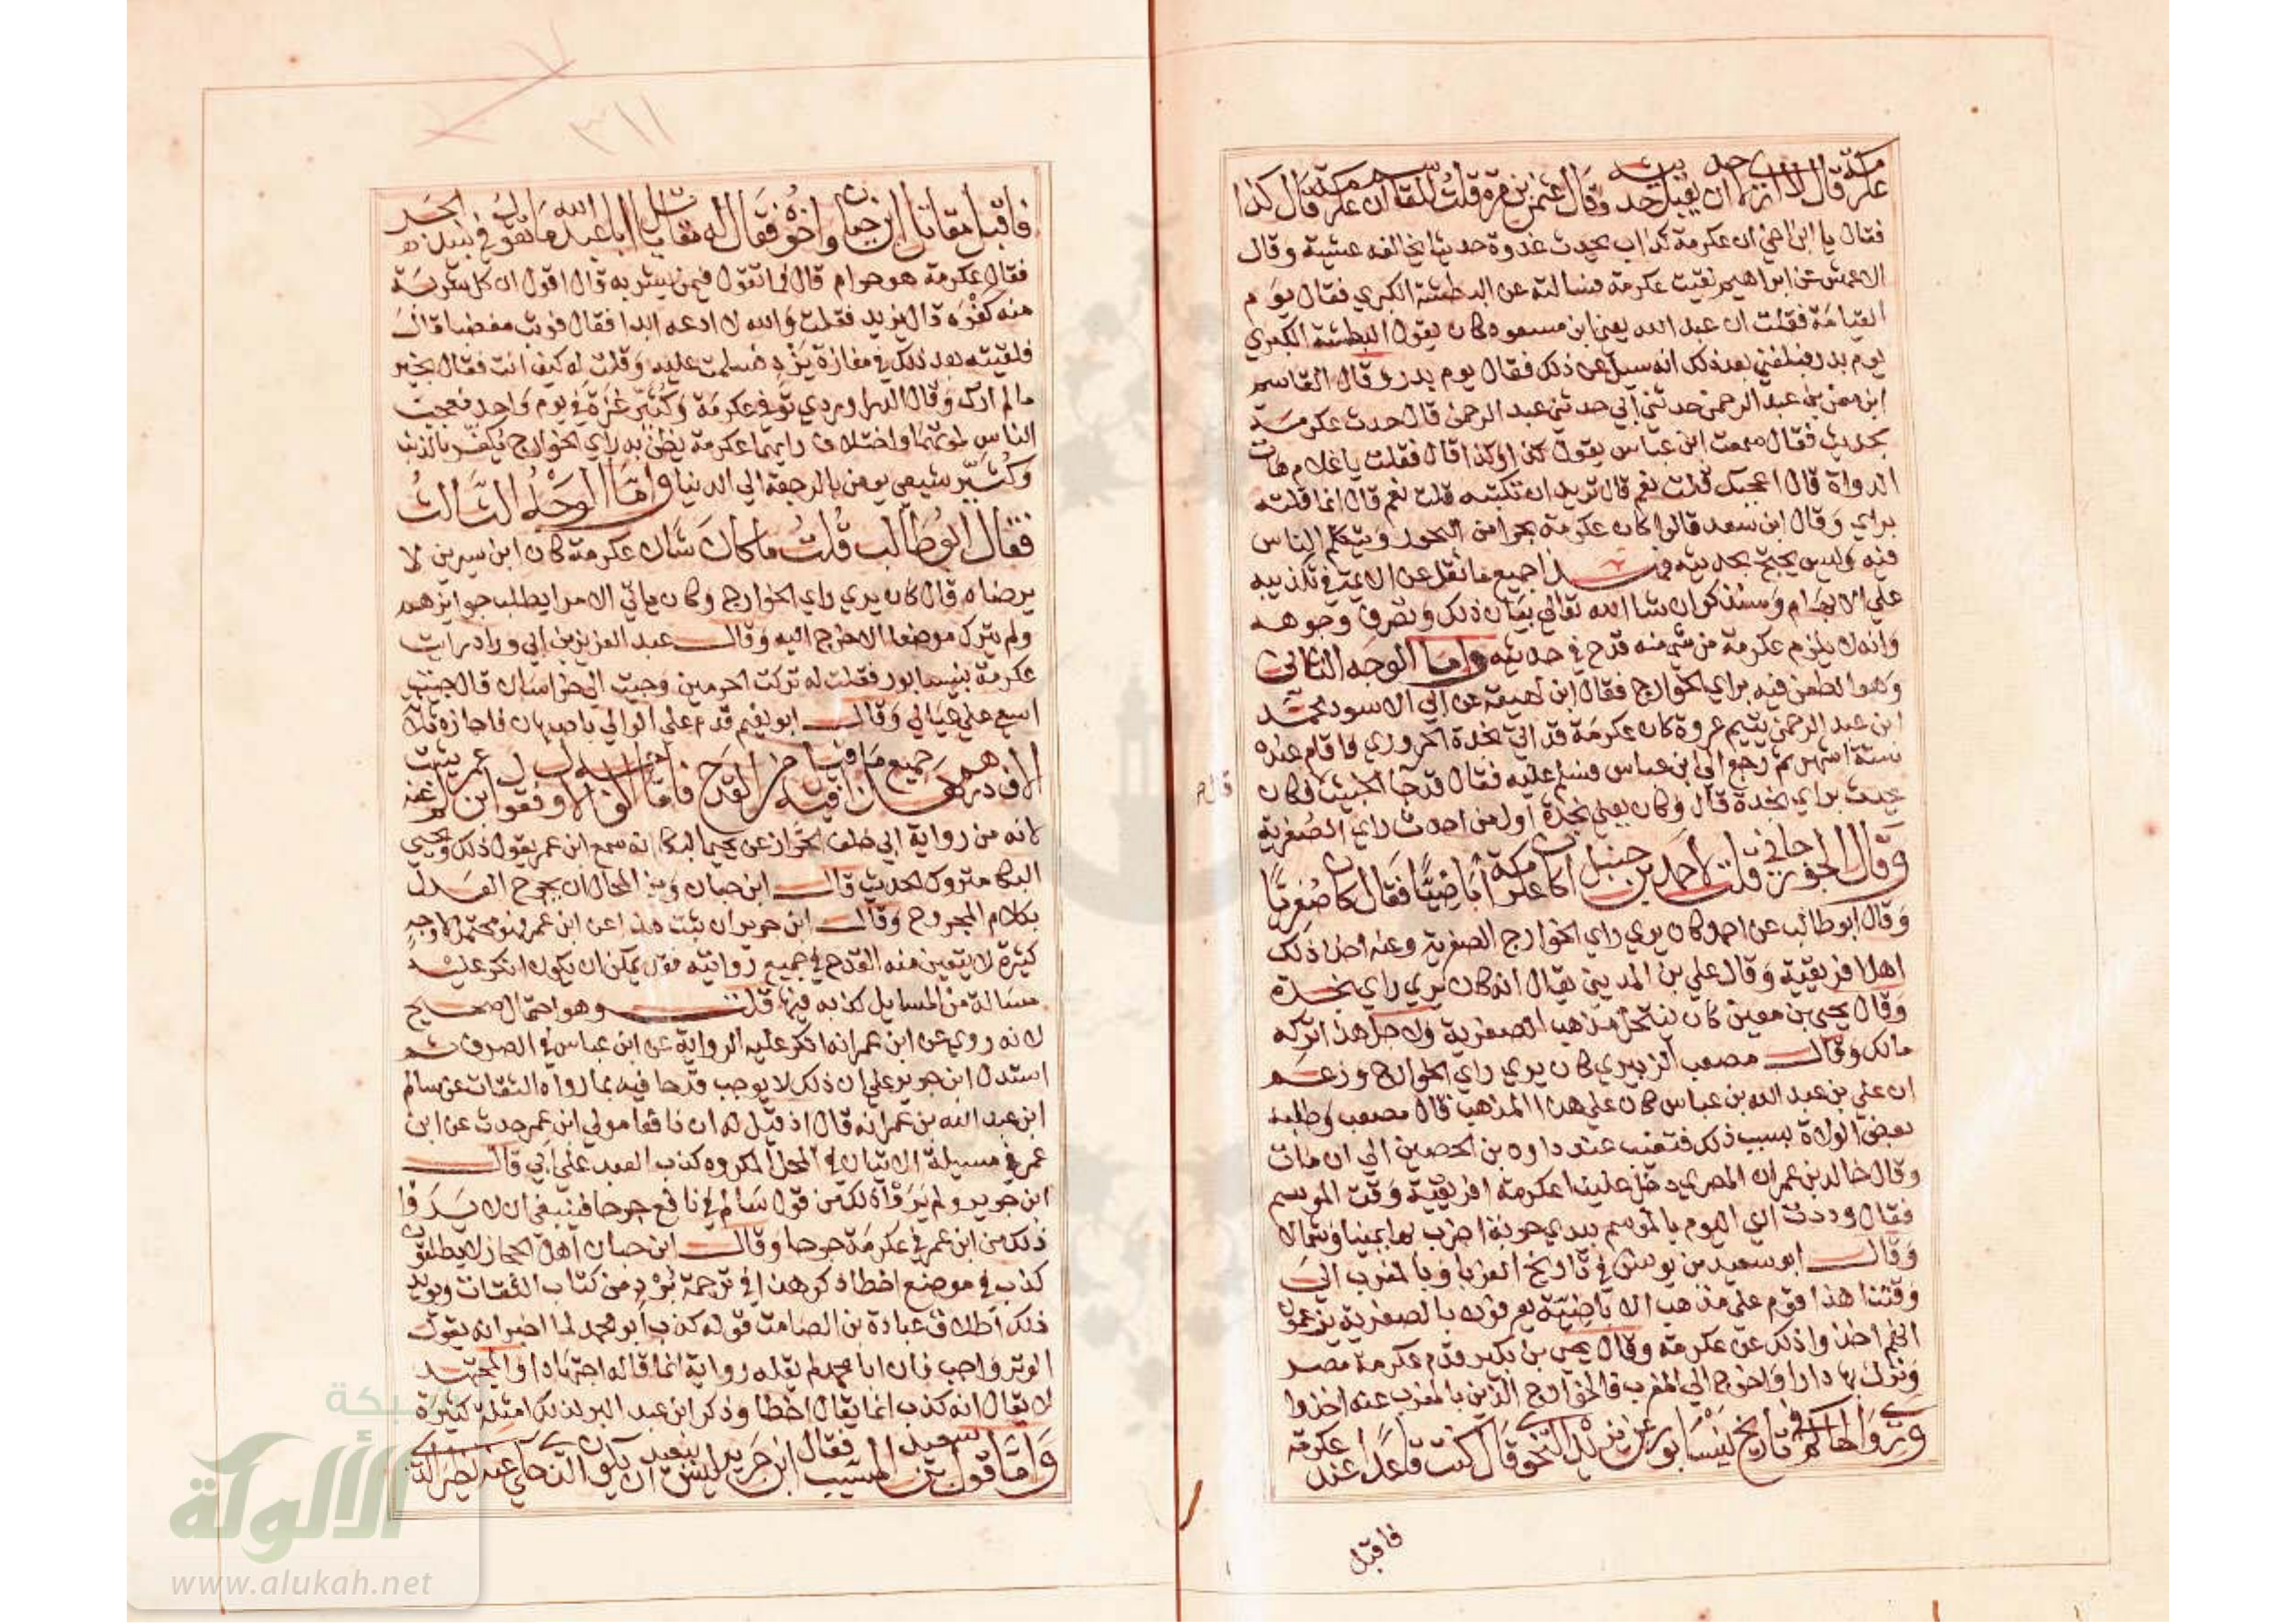 عكرمة قال لا اري لاحد ان يقبل حديثه وقال عثمان بن مرة قلت للقاسم ان عكرمة قال كذا
فقال يا ابن اخي ان عكرمة كذاب يحدث غدوة حديثا يخالفه عشية وقال
الاعمش عن ابراهيم لقيت عكرمة فسالته عن البطشة الكبري فقال يوم
القيامة فقلت ان عبد الله يعني ابن مسعود كان يقول البطشة الكبري
يوم بدر فبلغني بعد ذلك انه سيل عن ذلك فقال يوم بدر وقال القاسم
ابن معن بن عبد الرحمن حدثني ابي حدثني عبد الرحمن قال حدث عكرمة
بحديث فقال سمعت ابن عباس يقول كذا وكذا قال فقلت يا غلام هات
الدواة قال اعجبك قلت نعم قال تريد ان تكتبه قلت نعم قال انما قلته
براي وقال ابن سعد قالوا كان عكرمة بحرا من البحور ويتكلم الناس
فيه وليس يحتج بحديثه فهذا جميع ما نقل عن الايمة في تكذيبه
علي الابهام وسنذكر ان شا الله تعالي بيان ذلك ونصرف وجوهه
وانه لا يلزم عكرمة من شي منه قدح في حديثه واما الوجه الثاني
وهو الطعن فيه براي الخوارج فقال ابن لهيعة عن ابي الاسود محمد
ابن عبد الرحمن يتيم عروة كان عكرمة قد اتي نجدة الحروري فاقام عنده
ستة اشهر ثم رجع الي ابن عباس فسلم عليه فقال قد جا الخبيث فكان
يحدث براي نجدة قال وكان يعني نجدة اول من احدث راي الصفرية
قال م
وقال الجوزجاني قلت لاحمد بن حنبل اكان عكرمة اباضيا فقال كان صفريا
وقال ابو طالب عن احمد كان يري راي الخوارج الصفرية وعنه اخذ ذلك
اهل افريقية وقال علي بن المديني يقال انه كان يري راي نجدة
وقال يحيى بن معين كان ينتحل مذهب الصفرية ولاجل هذا تركه
مالك وقال مصعب الزبيري كان يري راي الخوارج وزعم
ان علي بن عبد الله بن عباس كان علي هذا المذهب قال مصعب وطلبه
بعض الولاة بسبب ذلك فتغيب عند داود بن الحصين الي ان مات
وقال خالد بن عمران المصري دخل علينا عكرمة افريقية وقت الموسم
فقال وددت اني اليوم بالموسم بيدي حربة اضرب بها يمينا وشمالا
وقال ابو سعيد بن يونس في تاريخ الغربا وبالمغرب الي
وقتنا هذا قوم علي مذهب الاباضية يعرفون بالصفرية يزعمون
انهم اخذوا ذلك عن عكرمة وقال يحيى بن بكير قدم عكرمة مصر
ونزل بها دارا وخرج الي المغرب فالخوارج الذين بالمغرب عنه اخذوا
وروي الحاكم في تاريخ نيسابور عن يزيد النحوي قال كنت قاعدا عند عكرمة
فاقبل
٣١١
فاقبل مقاتل ابن حيان واخوه فقال له مقاتل يا ابا عبد الله ما تقول في نبيذ الجر
فقال عكرمة هو حرام قال فما تقول فيمن يشربه قال اقول ان كل شربة
منه كفر قال يزيد فقلت والله لا ادعه ابدا فقال فوثب مغضبا قال
فلقيته بعد ذلك في مفازة يزد فسلمت عليه وقلت له كيف انت فقال بخير
ما لم ارك وقال الدراوردي توفي عكرمة وكثير عزة في يوم واحد فعجبت
الناس لموتهما واختلاف رايهما عكرمة يظن به راي الخوارج يكفر بالذنب
وكثير شيعي يومن بالرجعة الي الدنيا واما الوجه الثالث
فقال ابو طالب قلت ما كان شان عكرمة كان ابن سيرين لا
يرضاه قال كان يري راي الخوارج وكان ياتي الامرا يطلب جوايزهم
ولم يترك موضعا الا خرج اليه وقال عبد العزيز بن ابي رواد رايت
عكرمة بنيسابور فقلت له تركت الحرمين وجيت الي خراسان قال جيت
اسعي علي عيالي وقال ابو نعيم قدم علي الوالي باصبهان فاجازه بثلاثة
الاف درهم هذا جميع ما قيل فيه من القدح فاما الاول قول ابن عمر لم يثبت عنه
لانه من رواية ابي خلف الخزاز عن يحيى البكا انه سمع ابن عمر يقول ذلك ويحيى
البكا متروك الحديث قال ابن حبان ومن المحال ان يجرح العدل
بكلام المجروح وقال ابن جرير ان ثبت هذا عن ابن عمر فهو محتمل لاوجه
كثيرة لا يتعين منه القدح في جميع روايته فقد يمكن ان يكون انكر عليه
مسالة من المسايل كذبه فيها قلت وهو احتمال صحيح
لانه روي عن ابن عمر انه انكر عليه الرواية عن ابن عباس في الصرف ثم
استدل ابن جرير علي ان ذلك لا يوجب قدحا فيه بما رواه الثقات عن سالم
ابن عبد الله بن عمر انه قال اذ قيل له ان نافعا مولي ابن عمر حدث عن ابن
عمر في مسيلة الاتيان في المحل المكروه كذب العبد علي ابي قال
ابن جرير ولم يروا ذلك من قول سالم في نافع جرحا فينبغي ان لا يروا
ذلك من ابن عمر في عكرمة جرحا وقال ابن حبان اهل الحجاز يطلقون
كذب في موضع اخطا ذكر هذا في ترجمة برد من كتاب الثقات ويويد
ذلك اطلاق عبادة بن الصامت قوله كذب ابو محمد لما اخبر انه يقول
الوتر واجب فان ابا محمد لم يقله رواية انما قاله اجتهادا والمجتهد
لا يقال انه كذب انما يقال اخطا وذكر ابن عبد البر لذلك امثلة كثيرة
واما قول سعيد بن المسيب فقال ابن جرير ليس ببعيد ان يكون الذي حكي عنه نظير الذي
شبكة
الألوكة
www.alukah.net